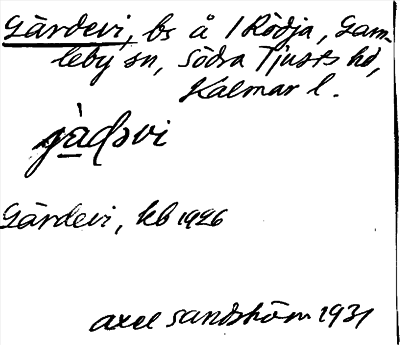 Gärdevi, bs å 1 Rödja, Gam-
leby sn, Södra Tjusts hd,
Kalmar l.
gàḍəvi
Gärdevi, kb 1926
Axel Sandström 1931